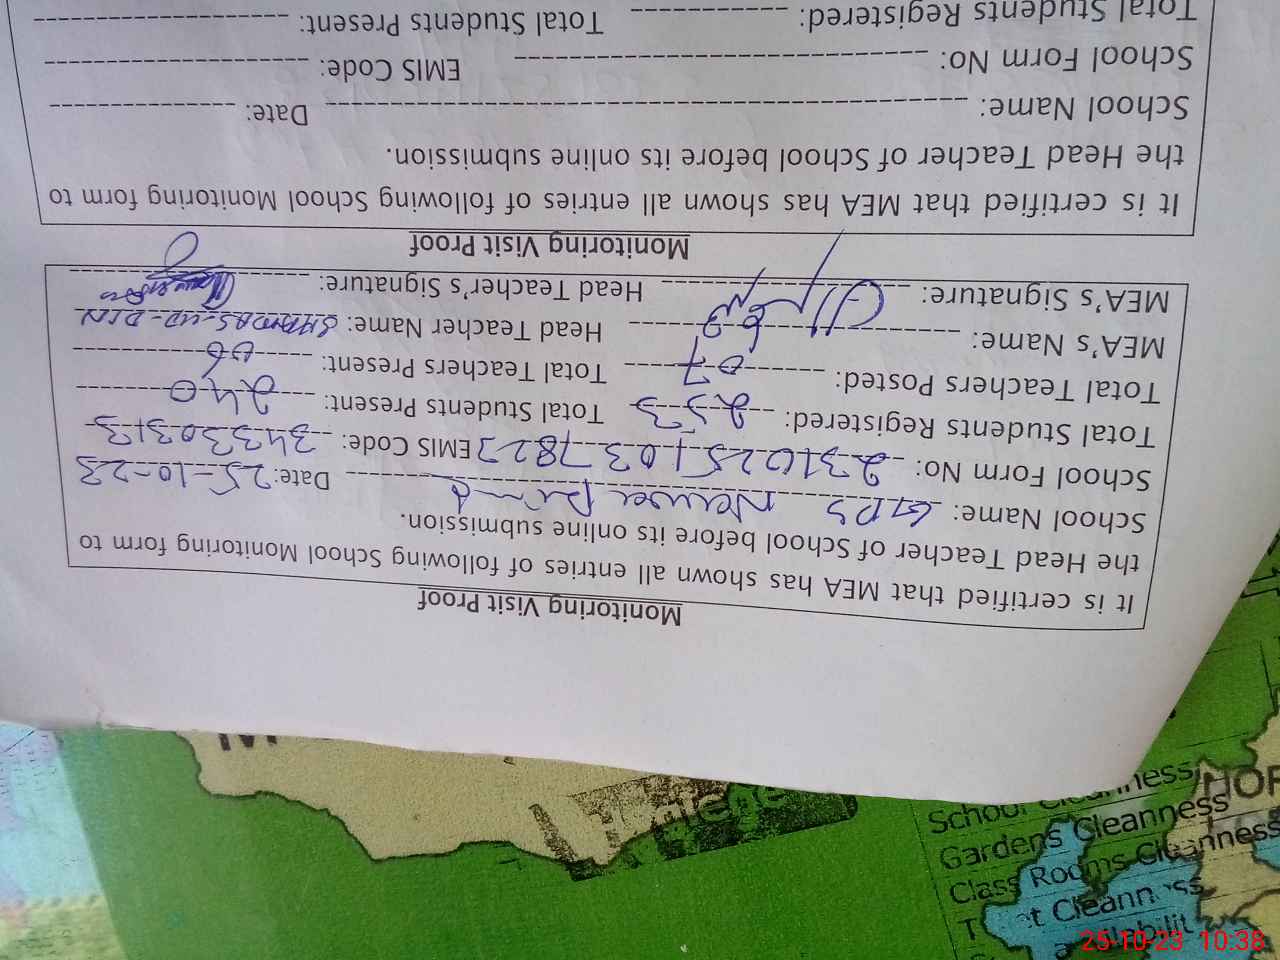 Monitoring Visit Proof
It is certified that MEA has shown all entries of following School Monitoring form to
the Head Teacher of School before its online submission.
School Name: GPS Date: 25-10-23
School Form No: 2310251037822 EMIS Code: 34330313
Total Students Registered: 253 Total Students Present: 240
Total Teachers Posted: 07 Total Teachers Present: 06
MEA's Name: Head Teacher Name: SHAMAS-UD-DIN
MEA's Signature: Head Teacher's Signature:
Monitoring Visit Proof
It is certified that MEA has shown all entries of following School Monitoring form to
the Head Teacher of School before its online submission.
School Name: Date:
School Form No: EMIS Code:
Total Students Registered: Total Students Present:
School Cleanness
Gardens Cleanness
Class Rooms Cleanness
Cleanness
25-10-23 10:38